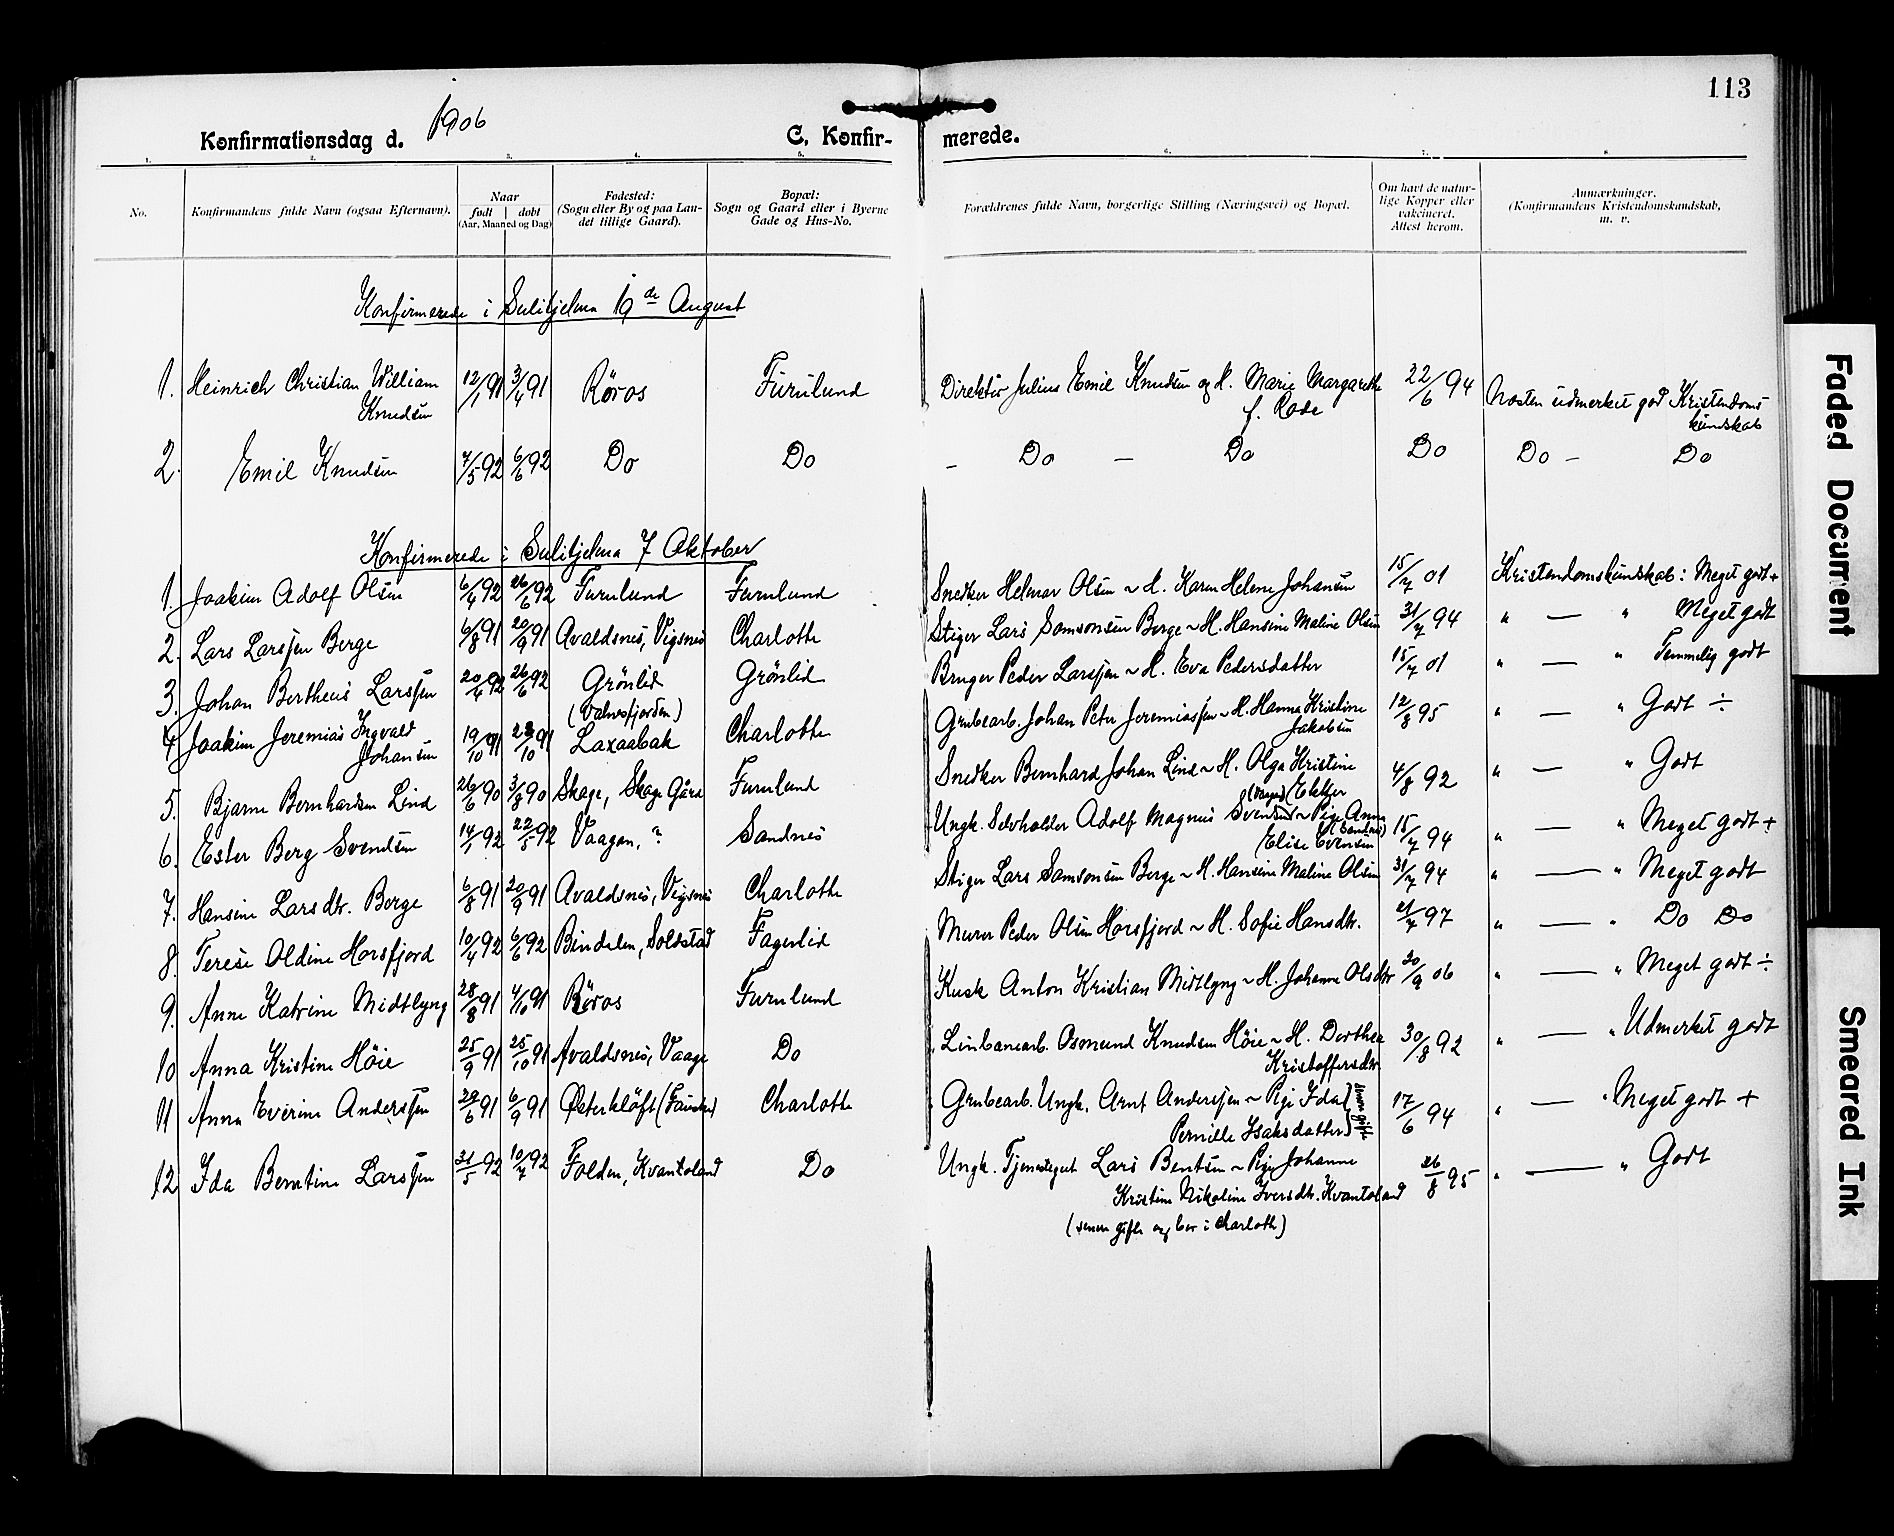 113
Konfirmationsdag d. 1906
C. Konfir- merede.
1. 2. 3. 4. 5. 6. 7. 8.
No.
Konfirmandens fulde Navn (ogsaa Efternavn).
Naar
født | døbt
(Aar, Maaned og Dag)
Fødested:
(Sogn eller By og paa Lan-
det tillige Gaard).
Bopæl:
Sogn og Gaard eller i Byerne
Gade og Hus-No.
Forældrenes fulde Navn, borgerlige Stilling (Næringsvei) og Bopæl.
Om havt de natur-
lige Kopper eller
vakcineret.
Attest herom.
Anmærkninger.
(Konfirmandens Kristendomskundskab,
m. v.
Konfirmerede i Sulitjelma 16de August
1. Heinrich Christian William 12/1 91 3/4 91 Röros Furulund Direktör Julius Emil Knudsen og H. Marie Margarethe 22/6 94 Næsten udmerket god Kristendoms
Knudsen f. Rode kundskab
2. Emil Knudsen 7/5 92 6/6 92 Do Do – Do – Do Do Do – Do
Konfirmerede i Sulitjelma 7 Oktober
1. Joakim Adolf Olsen 6/4 92 26/6 92 Furulund Furulund Snedker Helmer Olsen ~ H. Karen Helene Johansen 15/7 01 Kristendomskundskab: Meget godt +
2. Lars Larssen Berge 6/8 91 20/9 91 Avaldsnes, Vigsnes Charlotte Stiger Lars Samsonsen Berge ~ H. Hansine Maline Olsen 31/7 94 " — " Meget godt
3. Johan Bertheus Larssen 20/4 92 26/6 92 Grönlid Grönlid Bruger Peder Larssen ~ H. Eva Pedersdatter 15/7 01 " — " Temmelig godt
(Valnesfjorden)
4 Joakim Jeremias Ingvald 19/10 91 28/10 91 Laxaabak Charlotte Grubearb. Johan Peter Jeremiassen ~ H. Hanna Kristine 12/8 95 " — " Godt ÷
Johansen Jakobsen
5. Bjarne Bernhardsen Lind 26/6 90 3/8 90 Skage, Skage Gård Furulund Snedker Bernhard Johan Lind ~ H. Olga Kristine 4/8 92 " — " Godt
Ekker
6. Ester Berg Svendsen 14/1 92 22/5 92 Vaagan, ? Sandnes Ungk. Selvholder Adolf Magnus Svendsen ~ Pige Anna 15/7 94 " — " Meget godt +
Elise Evensen (Sandnes)
7. Hansine Larsdtr. Berge 6/8 91 20/9 91 Avaldsnes, Vigsnes Charlotte Stiger Lars Samsonsen Berge ~ H. Hansine Maline Olsen 31/7 94 " — " Meget godt
8. Terese Oldine Horsfjord 10/4 92 6/6 92 Bindalen, Solstad Fagerlid Murer Peder Olsen Horsfjord ~ H. Sofie Hansdtr. 21/7 97 " — " Do Do
9. Anne Katrine Midtlyng 28/8 91 4/10 91 Röros Furulund Kusk Anton Kristian Midtlyng ~ H. Johanne Olsdtr 20/9 06 " — " Meget godt ÷
10 Anna Kristine Höie 25/9 91 25/10 91 Avaldsnes, Vaage Do Linbanearb. Osmund Knudsen Höie ~ H. Dorthea 30/8 92 " — " Udmerket godt
Kristoffersdtr.
11 Anna Everine Anderssen 29/6 91 6/9 91 Østerkløft (Fauske) Charlotte Grubearb. Ungk. Arnt Anderssen ~ Pige Ida 17/6 94 " — " Meget godt +
Pernille Isaksdatter
12 Ida Berntine Larssen 31/5 92 10/7 92 Folden, Kvantoland Do Ungk. Tjenestegut Lars Bentsen ~ Pige Johanne 26/8 95 " — " Godt
Kristine Nikoline Iversdtr. Kvantoland
(senere gifte og bor i Charlotte)
Faded Document
Smeared Ink